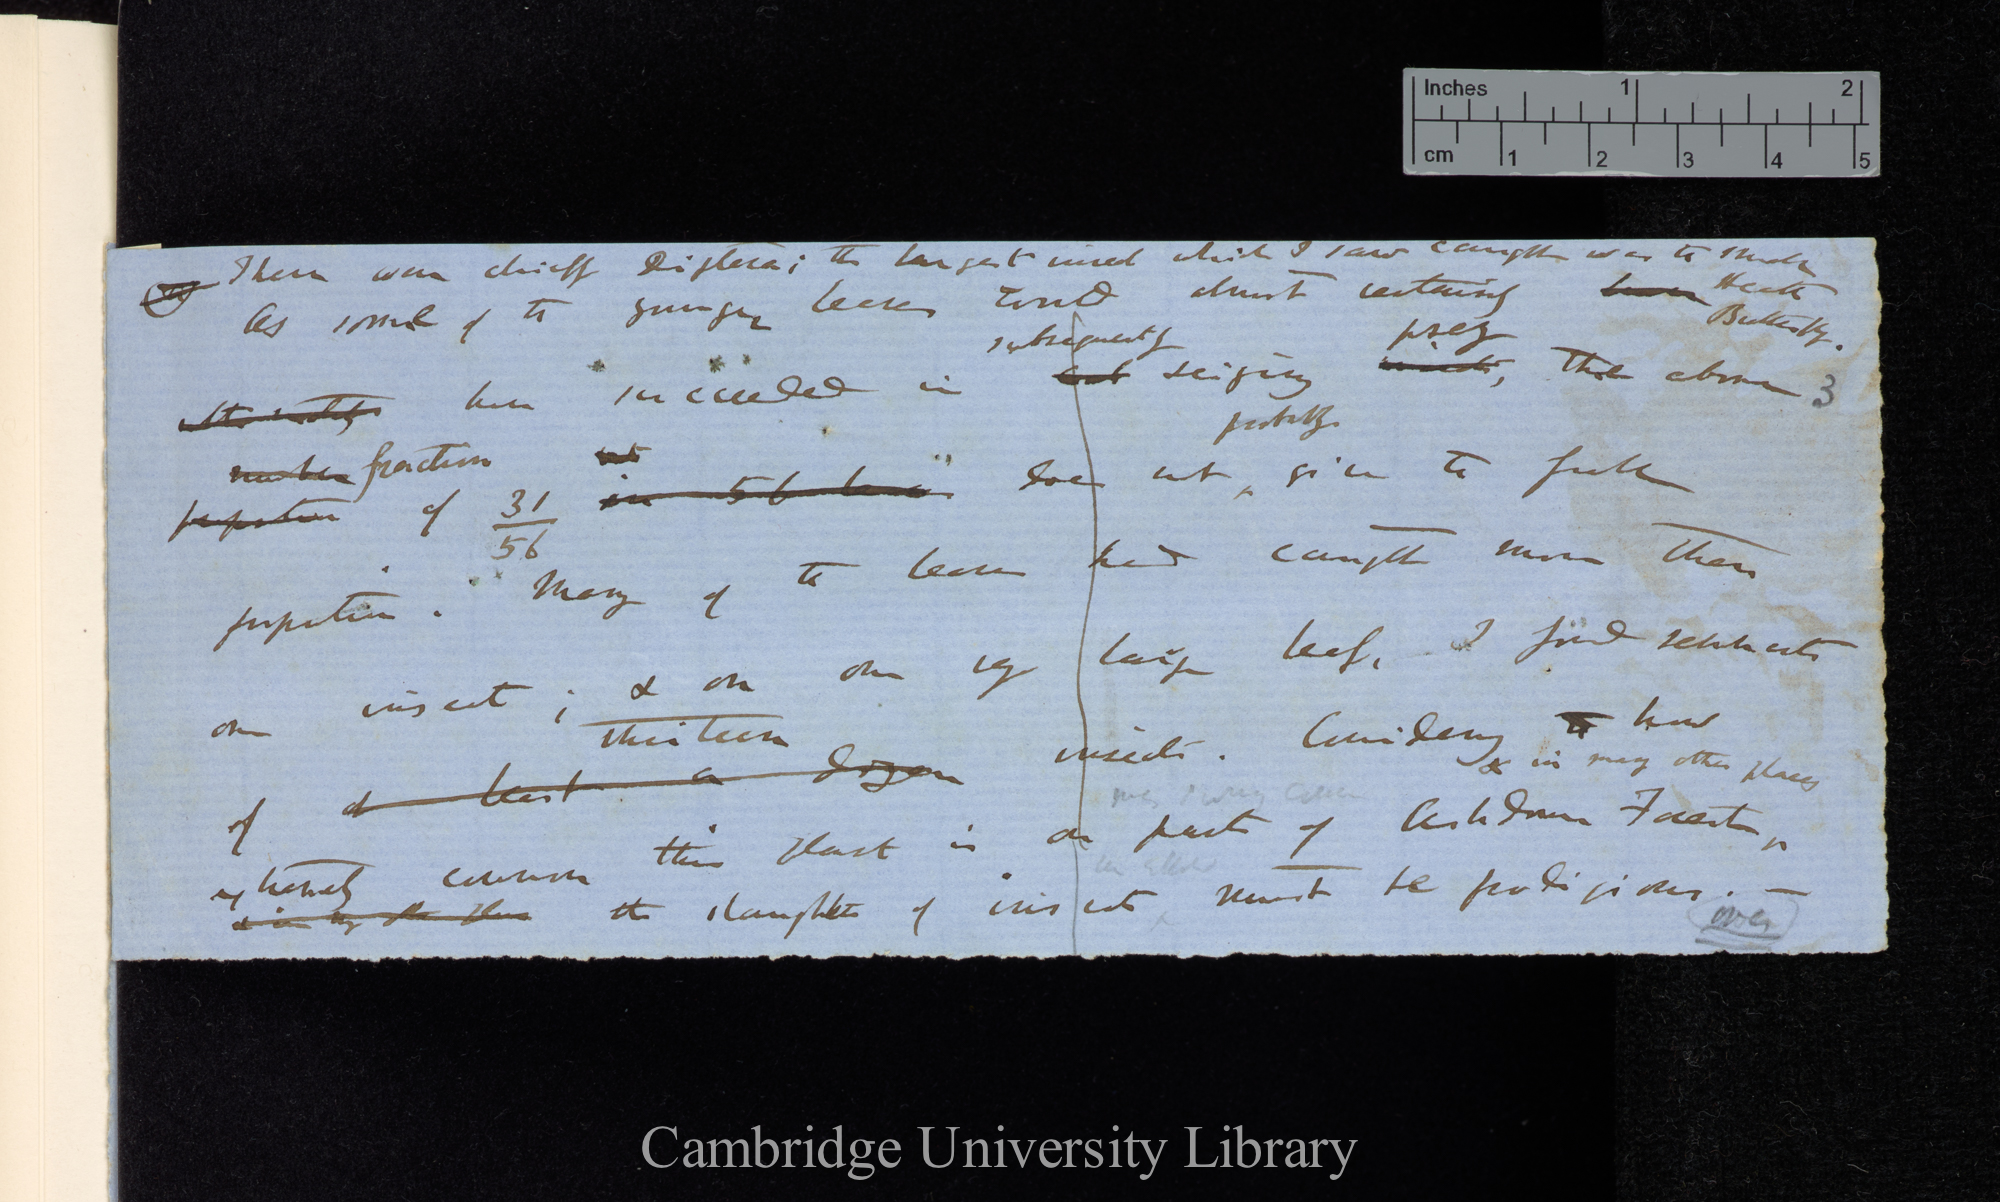 Inches 1 2
cm 1 2 3 4 5
There were chiefly Diptera; the largest insect which I saw caught was the small
Heath
Butterfly.
As some of the younger leaves would almost certainly have
subsequently prey
ultimately have succeeded in seizing insects, the above 3
probably
number fraction
proportion of 31/56 in 56 leaves does not, give the full
proportion. Many of the leaves had caught more than
one insect; & on one very large leaf, I found remnants
thirteen
of at least a dozen insects. Considering how
& in many other places
extremely common this plant is on parts of Ashdown Forest,
the slaughter of insects must be prodigious. —
over
Cambridge University Library